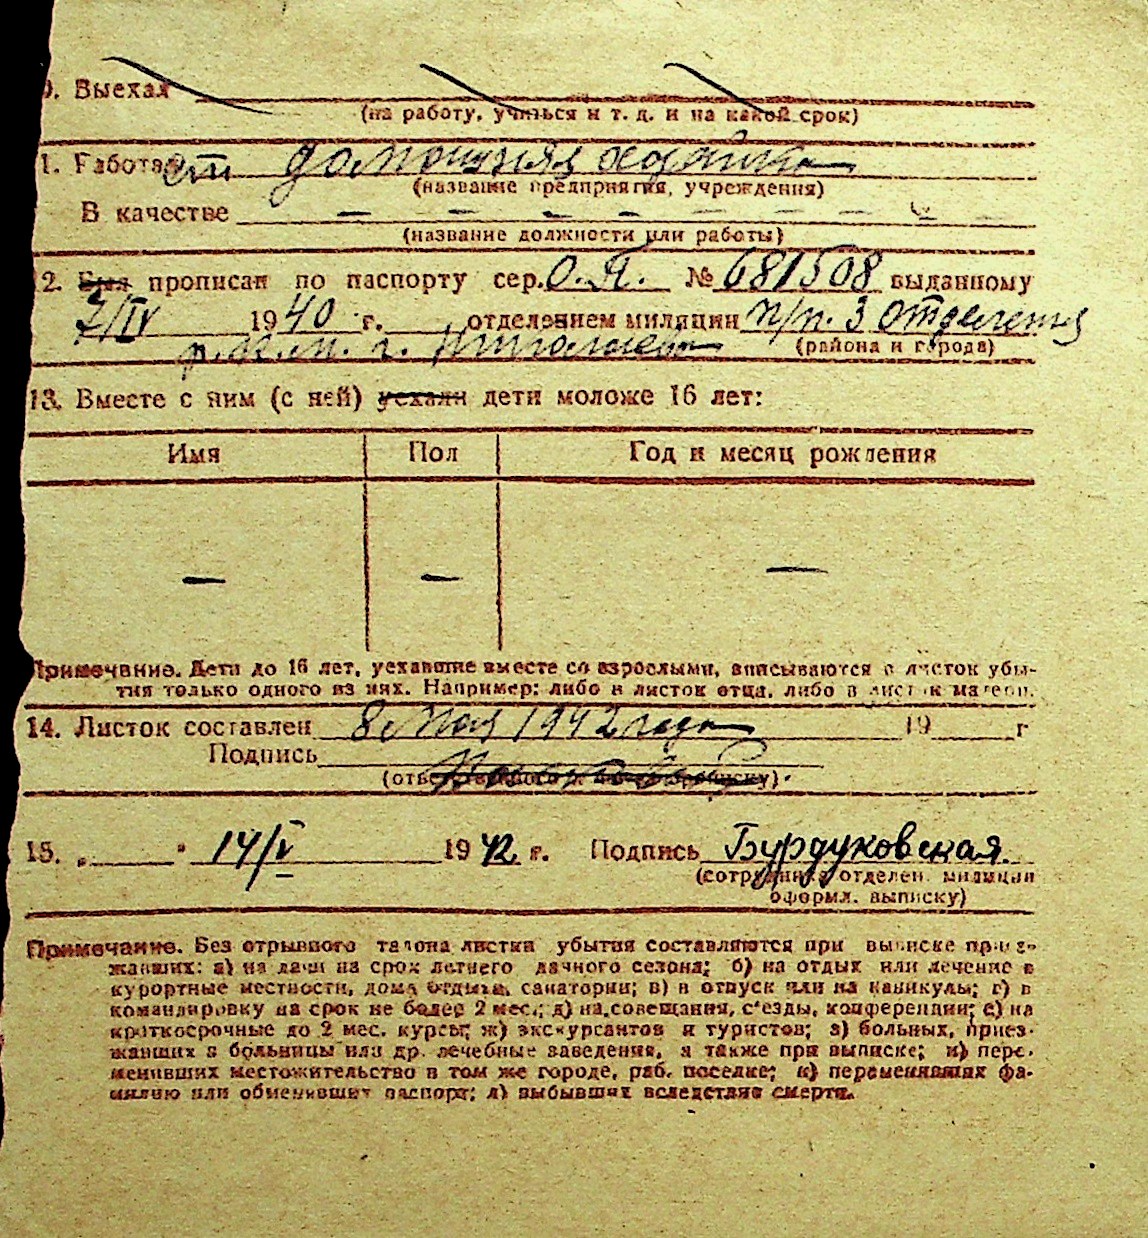 0. Выехал
(на работу, учиться и т. д. и на какой срок)
11. Работа домашняя хозяйка
(название предприятия, учреждения)
В качестве — — — — — — —
(название должности или работы)
12. Был прописан по паспорту сер. О.Я. № 681508 выданному
7/IV 1940 г. отделением милиции п/п. 3 отделения
р.к.м. г.
(района и города)
13. Вместе с ним (с ней) уехали дети моложе 16 лет:
Имя Пол Год и месяц рождения
— — —
Примечание. Дети до 16 лет, уехавшие вместе со взрослыми, вписываются в листок убы-
тия только одного из них. Например: либо в листок отца, либо в листок матери.
14. Листок составлен 8 мая 1942 года 19 г
Подпись
15. „ " 14/V 1942 г. Подпись Бурдуковская
(сотрудника отделен. милиции
оформл. выписку)
Примечание. Без отрывного талона листки убытия составляются при выписке приез-
жавших: а) на дачи на срок летнего дачного сезона; б) на отдых или лечение в
курортные местности, дома отдыха, санатории; в) в отпуск или на каникулы; г) в
командировку на срок не более 2 мес.; д) на совещания, с'езды, конференции; е) на
краткосрочные до 2 мес. курсы; ж) экскурсантов и туристов; з) больных, приез-
жавших в больницы или др. лечебные заведения, а также при выписке; и) пере-
менивших местожительство в том же городе, раб. поселке; к) переменивших фа-
милию или обменивших паспорт; л) выбывших вследствие смерти.